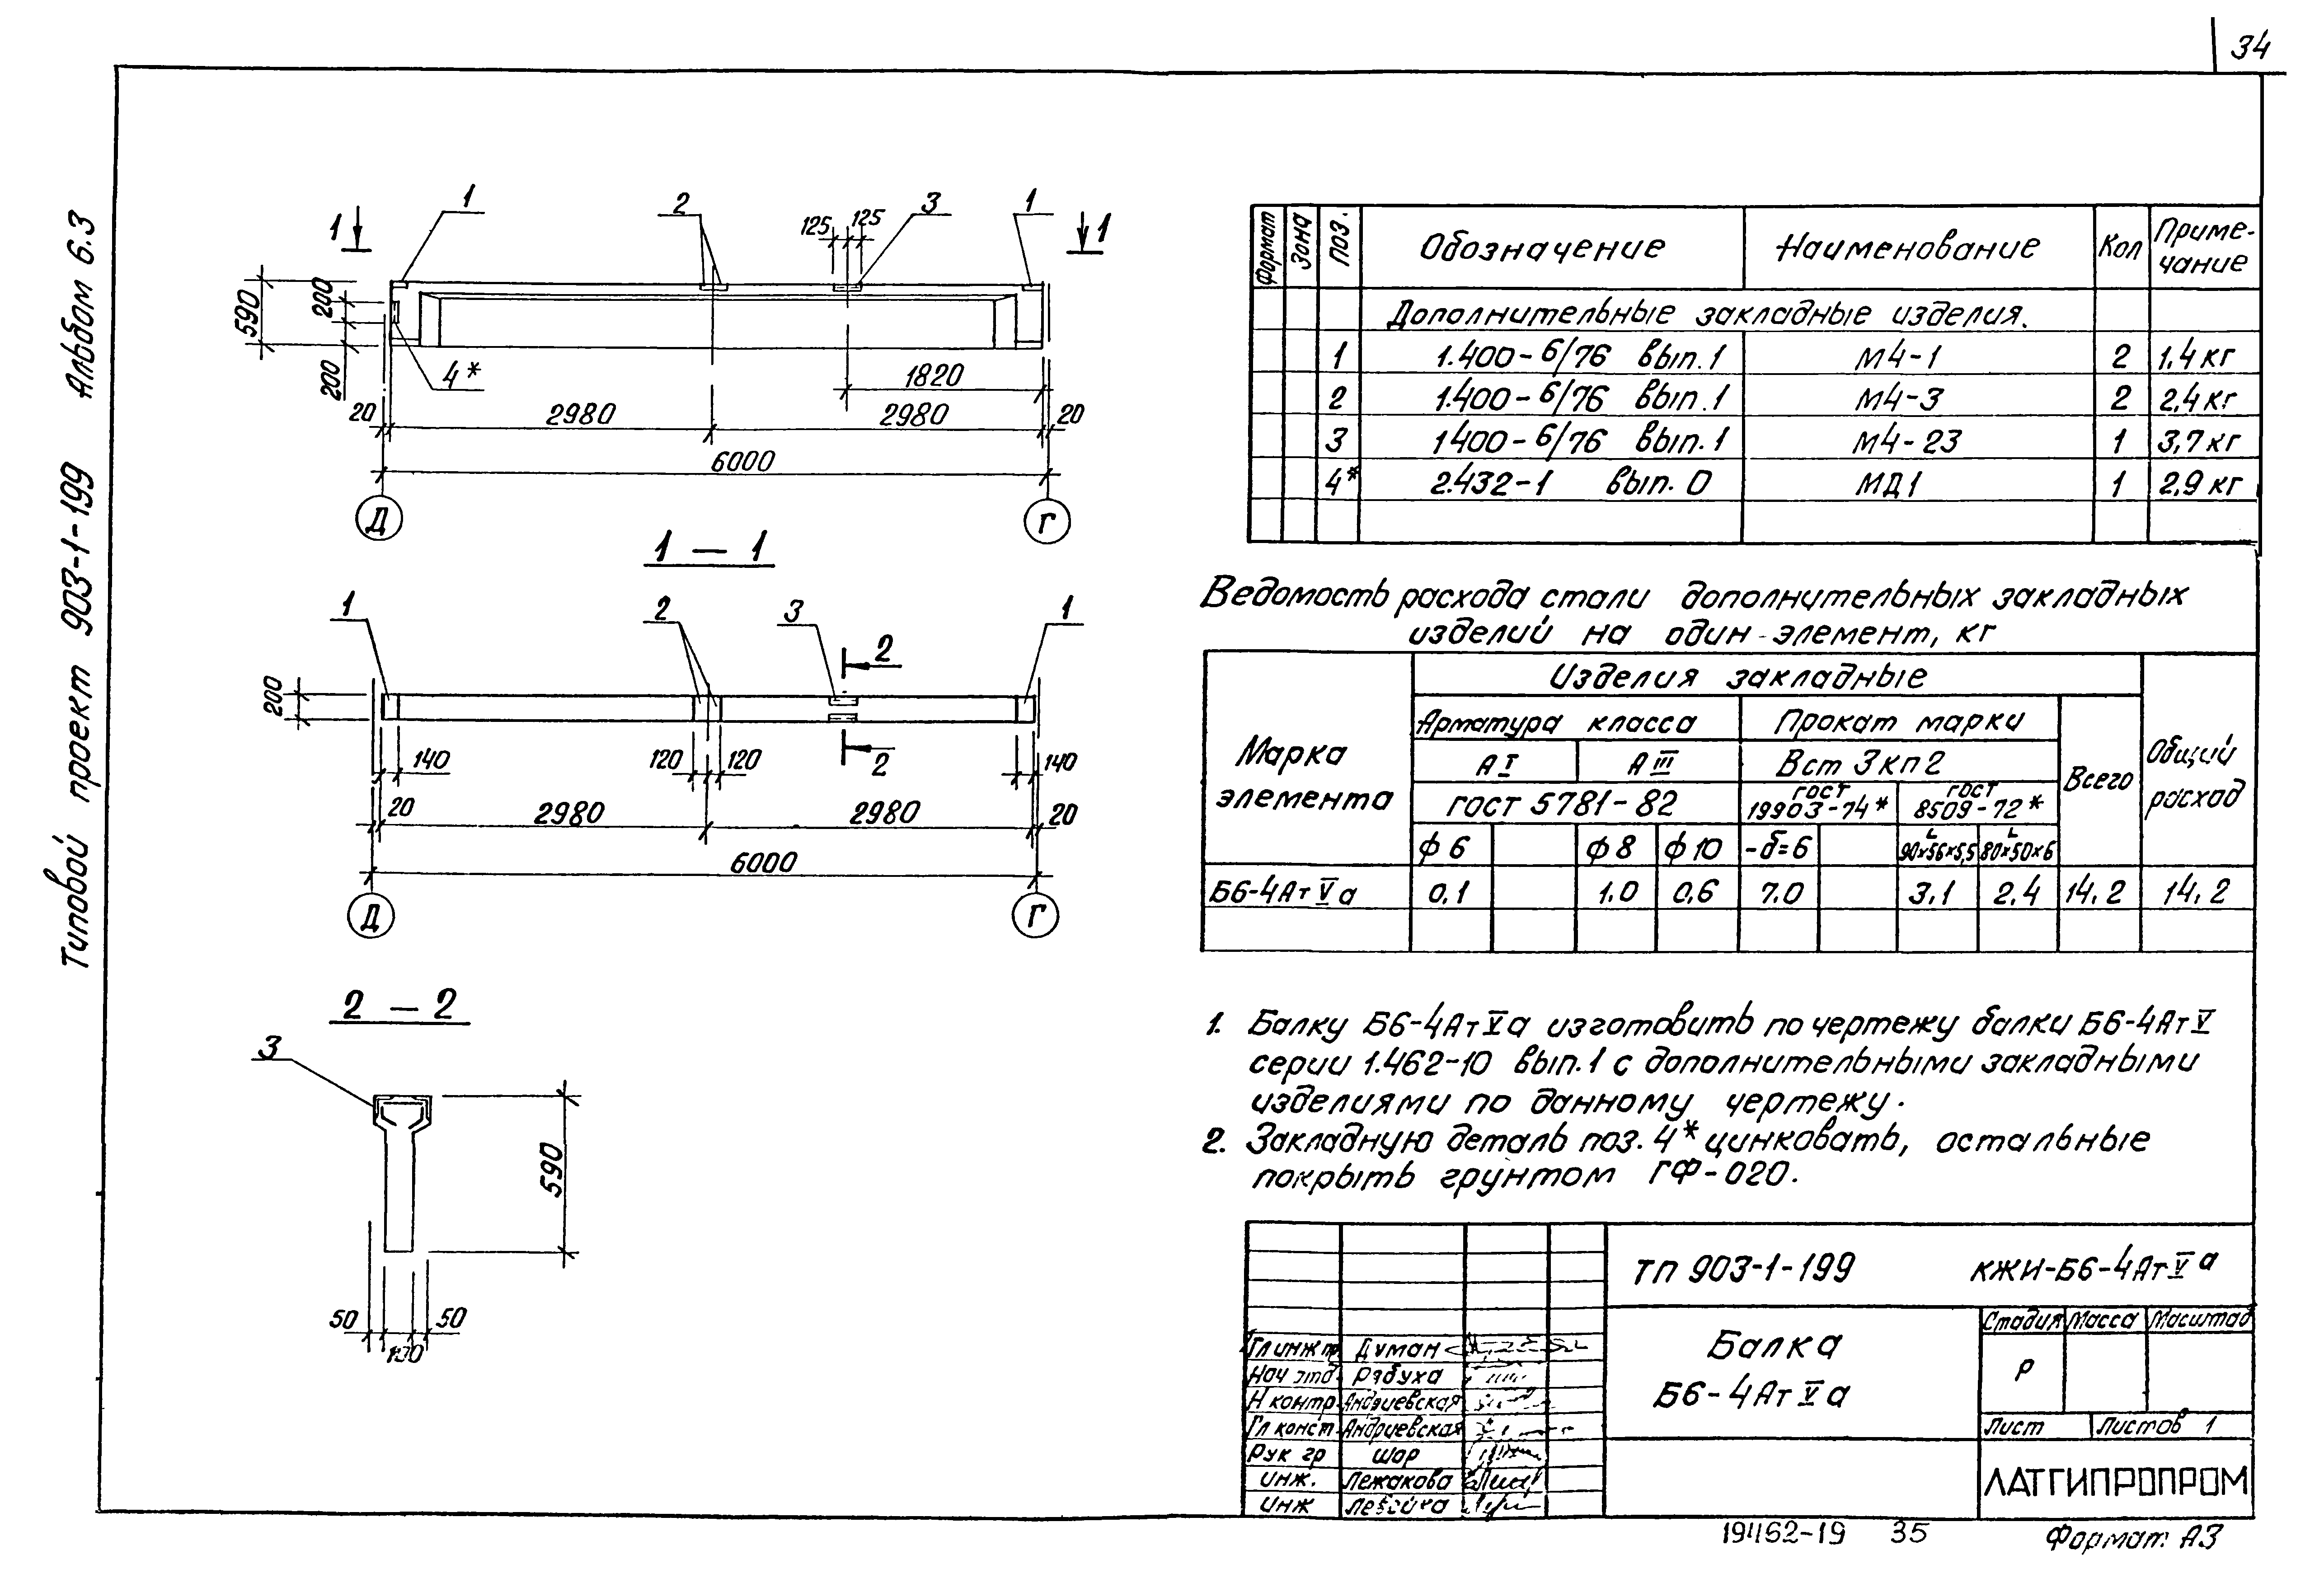 34
Типовой проект 903-1-199 Альбом 6.3
1 1 2 125 125 3 1 1
590 200 200
4*
1820
20 2980 2980 20
6000
Д Г
1 – 1
1 2 3 2 1
200
140 120 120 2 140
20 2980 2980 20
6000
Д Г
2 – 2
3
590
50 100 50
Формат Зона Поз. Обозначение Наименование Кол Приме-
чание
Дополнительные закладные изделия.
1 1.400-6/76 вып.1 М4-1 2 1,4 кг
2 1.400-6/76 вып.1 М4-3 2 2,4 кг
3 1400-6/76 вып.1 М4-23 1 3,7 кг
4* 2.432-1 вып. 0 МД1 1 2,9 кг
Ведомость расхода стали дополнительных закладных
изделий на один элемент, кг
Марка элемента
Изделия закладные
Общий расход
Арматура класса Прокат марки Всего
АI АIII Вст 3кп2
гост 5781-82 гост 19903-74* гост 8509-72*
ф6 ф8 ф10 -δ=6 L 90×56×5,5 L 80×50×6
Б6-4АтVа 0,1 1.0 0,6 7.0 3,1 2.4 14,2 14,2
1. Балку Б6-4АтVа изготовить по чертежу балки Б6-4АтV
серии 1.462-10 вып.1 с дополнительными закладными
изделиями по данному чертежу.
2. Закладную деталь поз. 4* цинковать, остальные
покрыть грунтом ГФ-020.
ТП 903-1-199 КЖИ-Б6-4АтVа
Балка
Б6-4АтVа
Стадия Масса Масштаб
Р
Лист Листов 1
ЛАТГИПРОПРОМ
Гл инж пр Думан
Нач отд Рябуха
Н контр. Андриевская
Гл конст. Андриевская
Рук гр Шор
инж. Лежакова
инж
19462-19 35 Формат А3